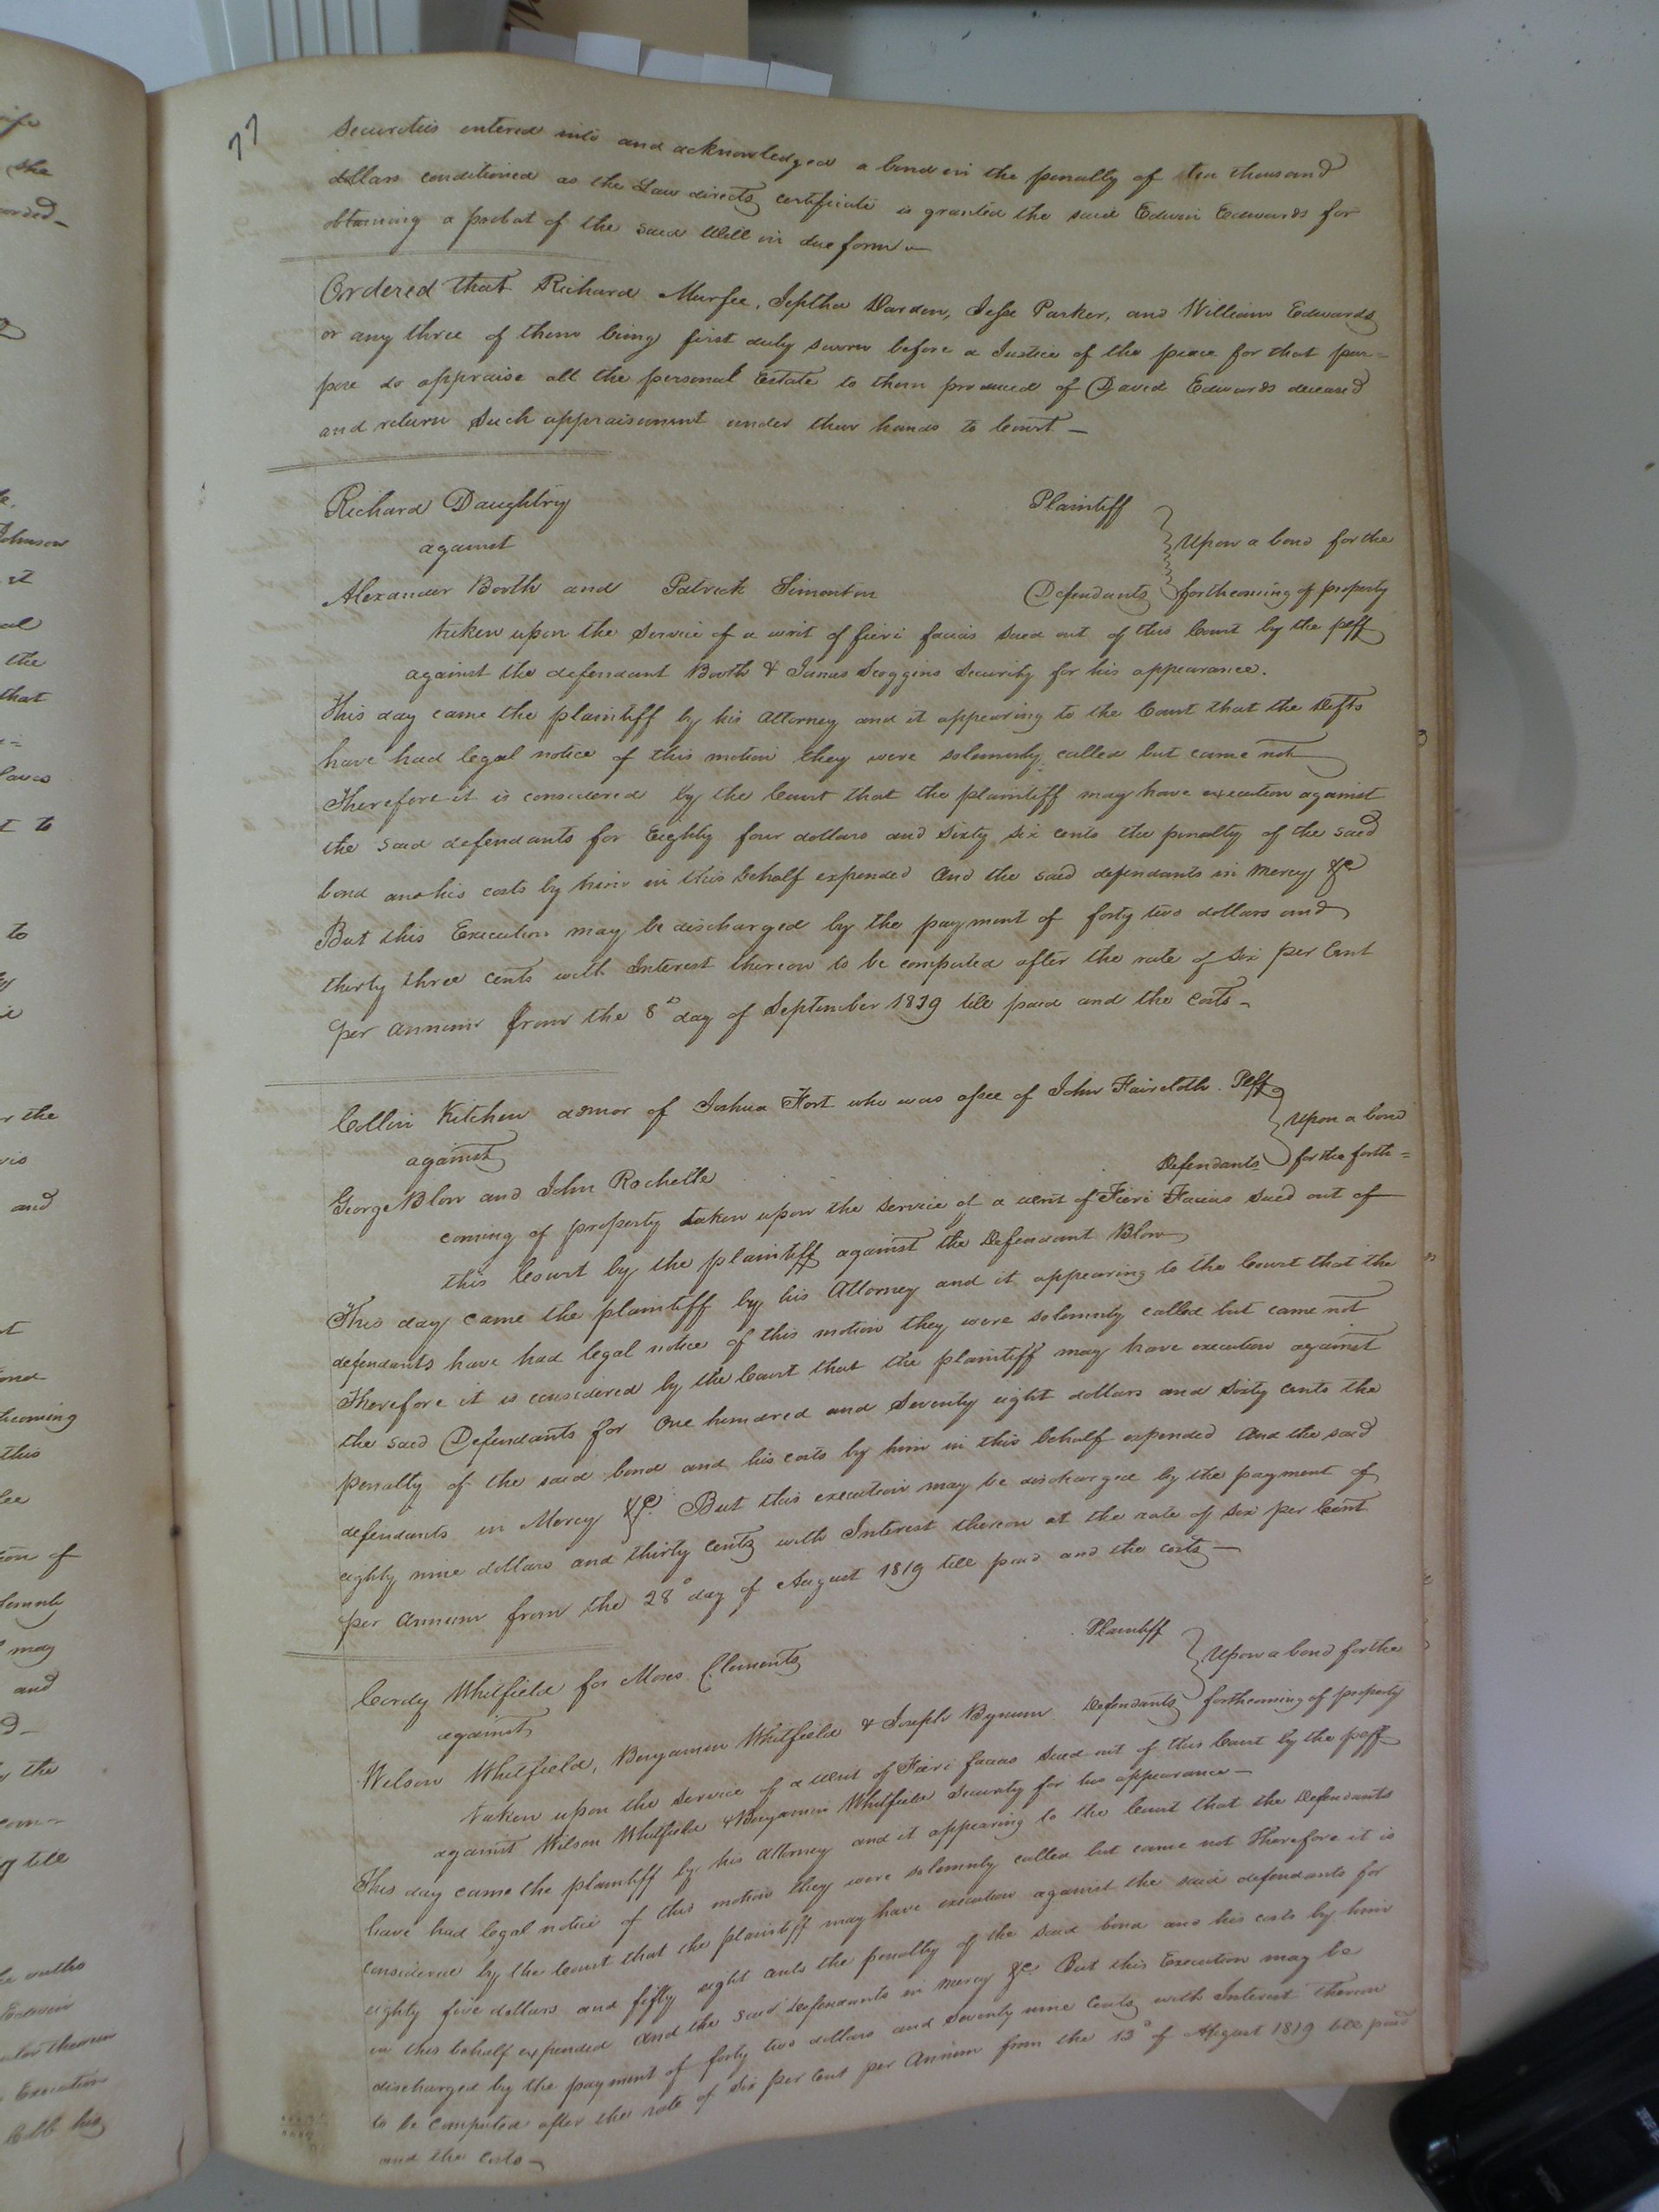 77
Securities entered into and acknowledged a bond in the penalty of ten thousand
dollars conditioned as the Law directs certificate is granted the said Edwin Edwards for
obtaining a probat of the said Will in due form
Ordered that Richard Murfee, Jeptha Darden, Jesse Parker, and William Edwards
or any three of them being first duly sworn before a Justice of the peace for that pur=
pose do appraise all the personal Estate to them produced of David Edwards deceased
and return Such appraisement under their hands to Court
Richard Daughtry Plaintiff
against Upon a bond for the
Alexander Booth and Patrick Simonton Defendants forthcoming of property
taken upon the Service of a writ of fieri facias Sued out of this Court by the peff
against the defendant Booth & James Scoggins Security for his appearance.
This day came the plaintiff by his Attorney and it appearing to the Court that the Defts
have had legal notice of this motion they were solemnly called but came not
Therefore it is considered by the Court that the plaintiff may have execution against
the said defendants for Eighty four dollars and Sixty six cents the penalty of the said
bond and his costs by him in this behalf expended And the said defendants in mercy &c
But this Execution may be discharged by the payment of forty two dollars and
thirty three cents with Interest thereon to be computed after the rate of Six per Cent
per annum from the 8º day of September 1819 till paid and the Costs
Collin Kitchen admor of Joshua Fort who was assee of John Faircloth Peff
against Upon a bond
George Blow and John Rochelle Defendants for the forth=
coming of property taken upon the Service of a writ of Fieri Facias Sued out of
this Court by the plaintiff against the Defendant Blow
This day came the plaintiff by his Attorney and it appearing to the Court that the
defendants have had legal notice of this motion they were solemnly called but came not
Therefore it is considered by the Court that the plaintiff may have execution against
the said Defendants for One hundred and Seventy eight dollars and Sixty cents the
penalty of the said bond and his costs by him in this behalf expended And the said
defendants in Mercy &c. But this execution may be discharged by the payment of
eighty nine dollars and thirty Cents with Interest thereon at the rate of Six per Cent
per Annum from the 28º day of August 1819 till paid and the costs
Cordy Whitfield for Moses Clements Plaintiff
against Upon a bond for the
Wilson Whitfield, Benjamin Whitfield & Joseph Bynum Defendants forthcoming of property
taken upon the Service of a Writ of Fieri facias Sued out of this Court by the peff
against Wilson Whitfield & Benjamin Whitfield Security for his appearance
This day came the plaintiff by his Attorney and it appearing to the Court that the Defendants
have had legal notice of this motion they were solemnly called but came not Therefore it is
Considered by the Court that the plaintiff may have execution against the said defendants for
eighty five dollars and fifty eight cents the penalty of the said bond and his costs by him
in this behalf expended And the said Defendants in mercy &c. But this Execution may be
discharged by the payment of forty two dollars and Seventy nine Cents with Interest thereon
to be computed after the rate of Six per Cent per Annum from the 13º of August 1819 till paid
and the Costs